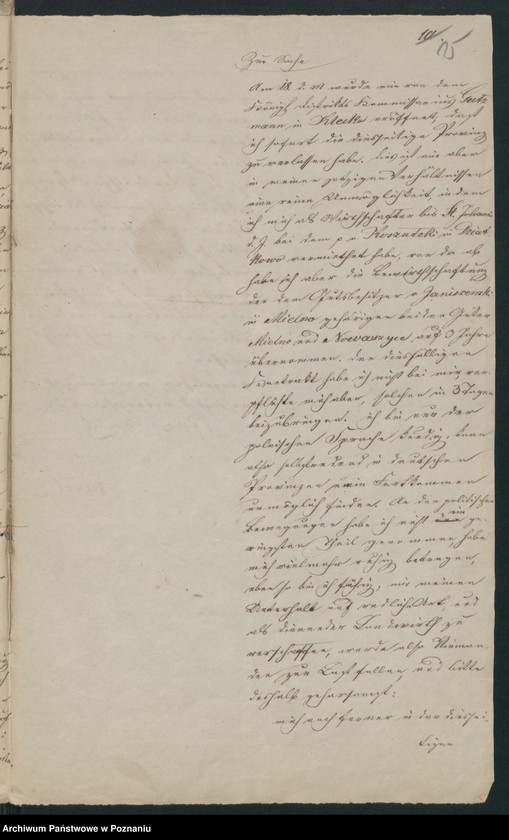 19
15
Zur Sache
Am 18. d. M wurde mir von dem
Königl. Distrikts Kommissarius
mann in Klecko eröffnet, daß
ich sofort die diesseitige Provinz
zu verlassen habe. Dies ist mir aber
in meinen jetzigen Verhältnissen
eine reine Unmöglichkeit, indem
ich mich als Wirthschafter bis St. Johanni
d. J. bei dem p v Koszutski in
kowo vermiethet habe, von da ab
habe ich aber die Bewirthschaftung
der dem Gutsbesitzer v Janiszewski
in Mielno gehörigen beiden Güter
Mielno und Nowaszyce auf 3 Jahre
übernommen. Den diesfälligen
Kontrakt habe ich nicht bei mir ver
pflichte mich aber, solchen in 3 Tagen
beizubringen. Ich bin nur der
polnischen Sprache kundig, kann
also selbstredend in deutschen
Provinzen mein Fortkommen
unmöglich finden. An den politischen
Bewegungen habe ich nicht im ge
ringsten Theil genommen, habe
mich vielmehr ruhig betragen,
aber so bin ich fähig, mir meinen
Unterhalt auf redliche Art, und
als dienender Landwirth zu
verschaffen, werde also Nieman-
den zur Last fallen, und bitte
deshalb gehorsamst:
mich auch ferner in der diessei-
tigen
Archiwum Państwowe w Poznaniu